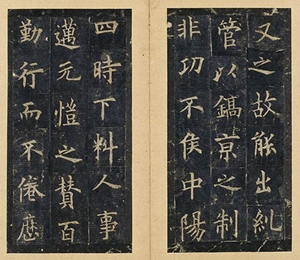 文之故能出糺
管以鎬京之制
非功不侯中陽
四時下料人事
邁元愷之賛百
勤行而不倦歷